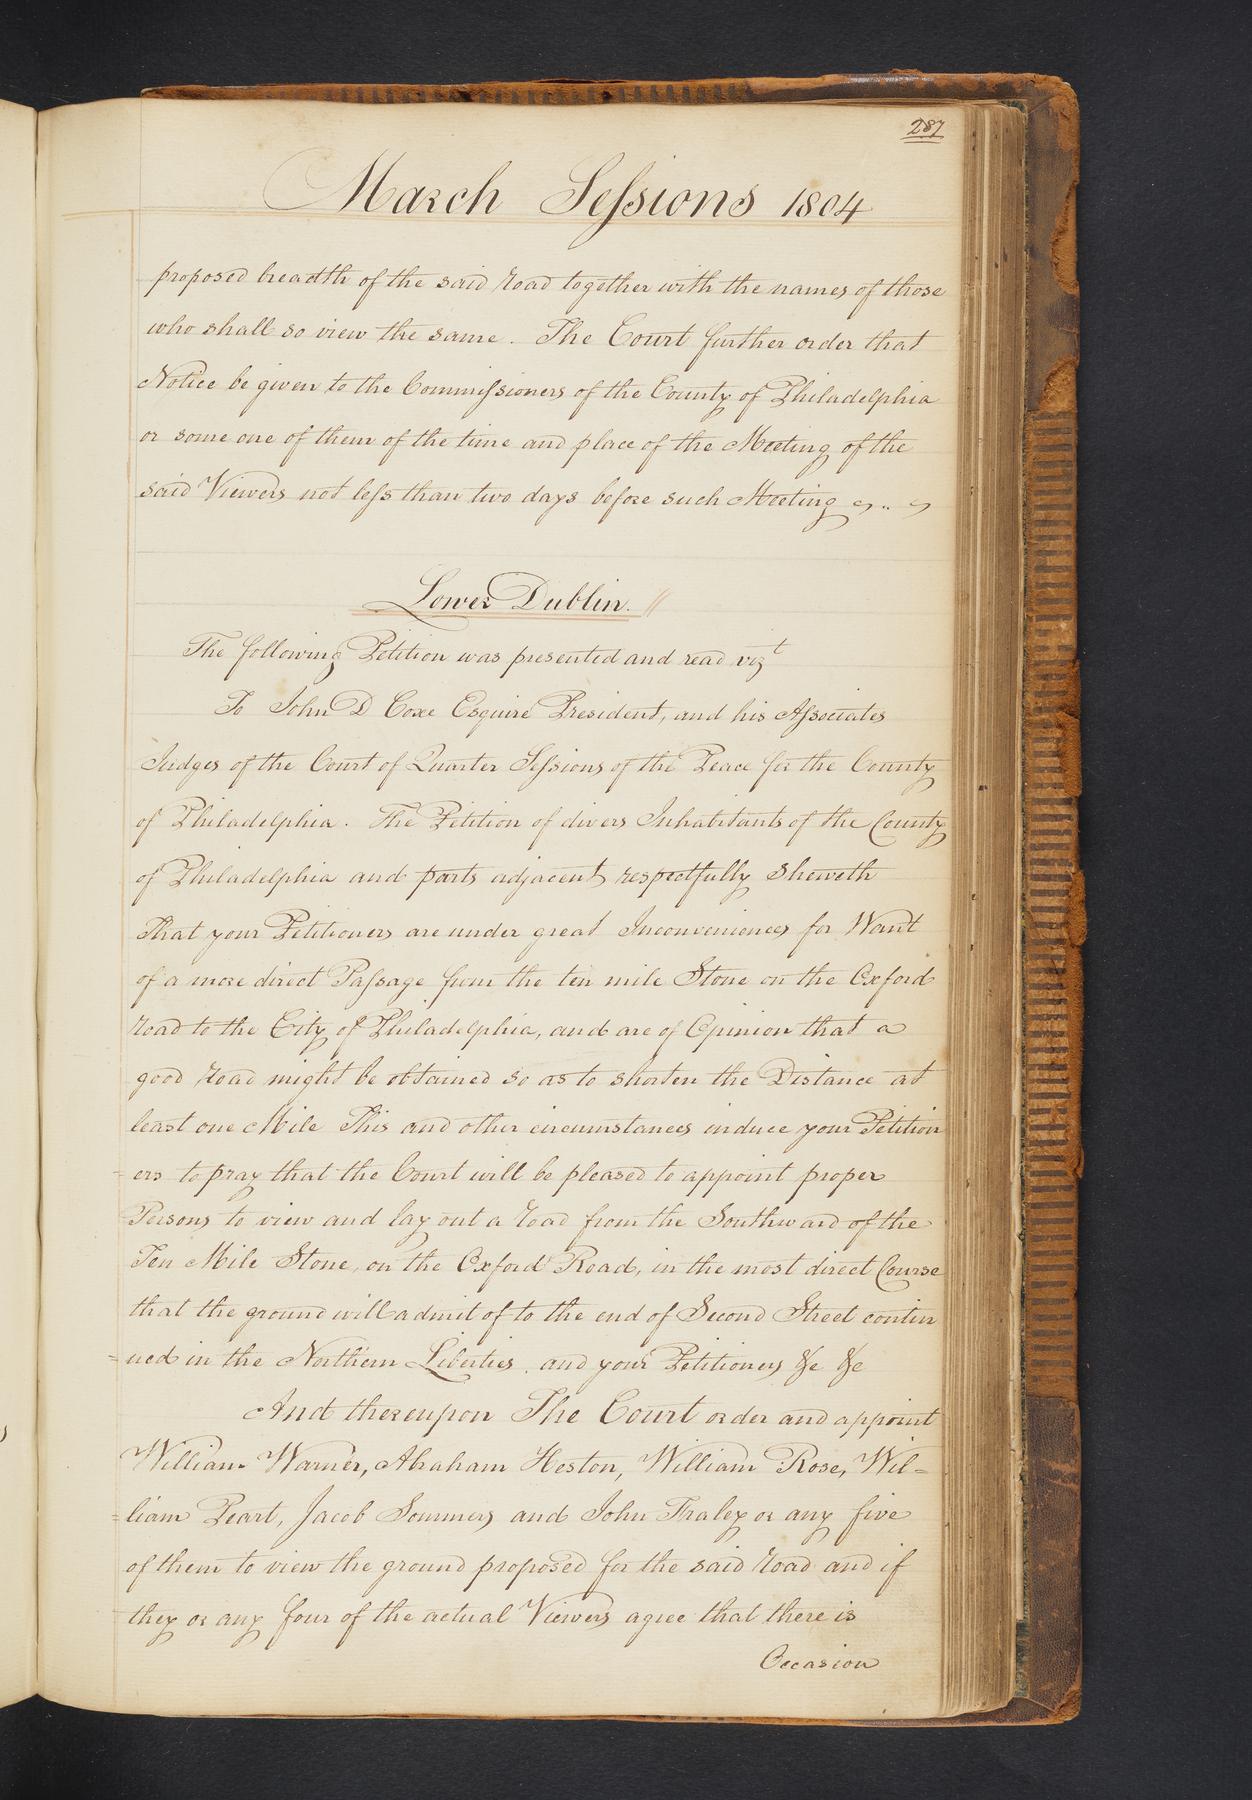 287
March Sessions 1804
proposed breadth of the said road together with the names of those
who shall so view the same. The Court further order that
Notice be given to the Commissioners of the County of Philadelphia
or some one of them of the time and place of the Meeting of the
said Viewers not less than two days before such Meeting
Lower Dublin.
The following Petition was presented and read vizt
To John D Coxe Esquire President, and his Associates
Judges of the Court of Quarter Sessions of the Peace for the County
of Philadelphia. The Petition of divers Inhabitants of the County
of Philadelphia and parts adjacent respectfully Sheweth
That your Petitioners are under great Inconveniences for Want
of a more direct Passage from the ten mile Stone on the Oxford
road to the City of Philadelphia, and are of Opinion that a
good road might be obtained so as to shorten the Distance at
least one Mile This and other circumstances induce your Petition
ers to pray that the Court will be pleased to appoint proper
Persons to view and lay out a road from the Southward of the
Ten Mile Stone, on the Oxford Road, in the most direct Course
that the ground will admit of to the end of Second Street contin
=ued in the Northern Liberties. and your Petitioners &c &c
And thereupon The Court order and appoint
William Warner, Abraham Heston, William Rose, Wil=
=liam Peart, Jacob Sommers and John Fraley or any five
of them to view the ground proposed for the said road and if
they or any four of the actual Viewers agree that there is
Occasion